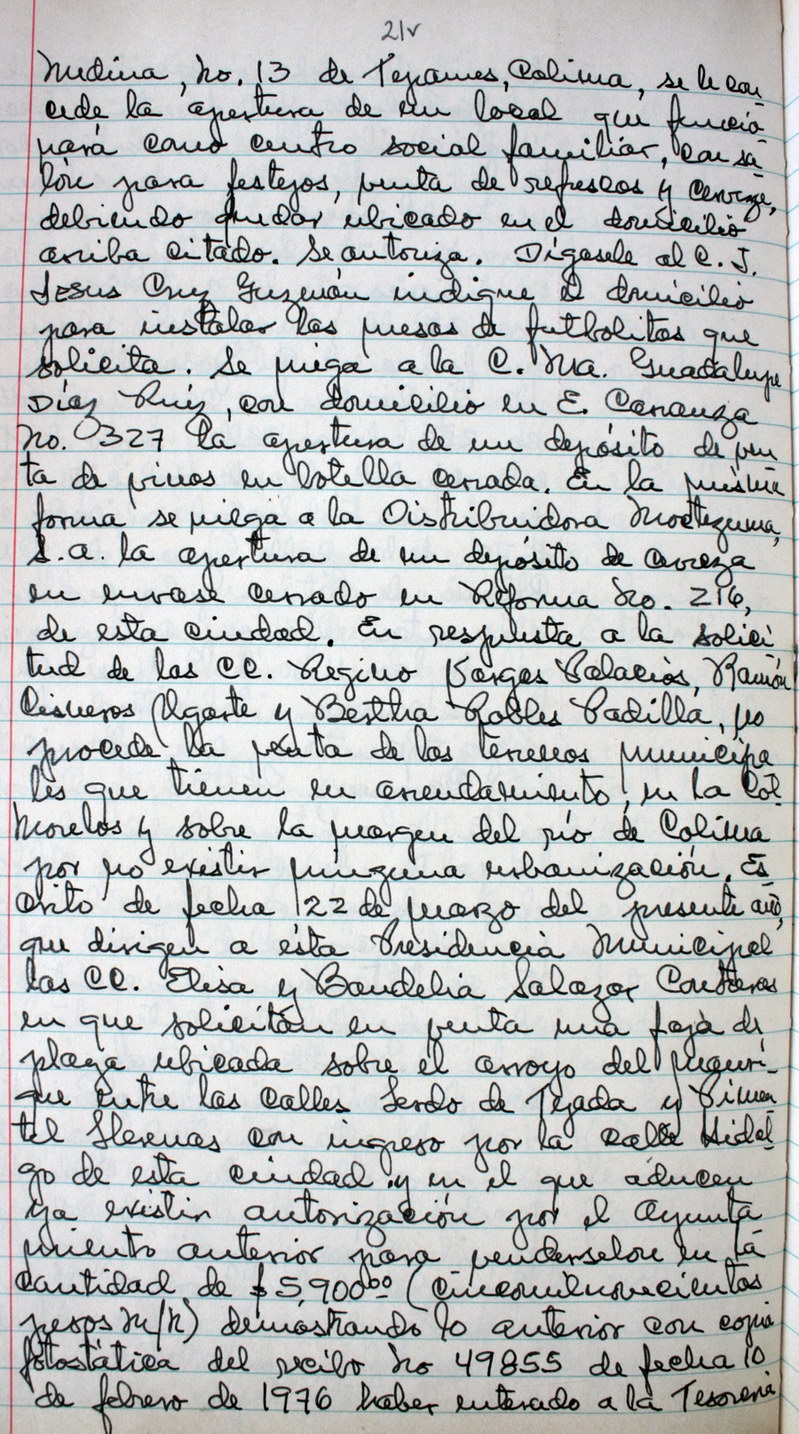 21v
Medina, No. 13 de Tepames, Colima, se le con
cede la apertura de un local que funcio
nará como centro social familiar, con sa
lón para festejos, venta de refrescos y cerveza,
debiendo quedar ubicado en el domicilio
arriba citado. Se autoriza. Dígasele al C. J.
Jesus Cruz Guzmán indique el domicilio
para instalar las mesas de futbolitos que
solicita. Se niega a la C. Ma. Guadalupe
Díaz Ruiz, con domicilio en E. Carranza
No. 327 la apertura de un depósito de ven
ta de vinos en botella cerrada. En la misma
forma se niega a la Distribuidora Moctezuma,
S.a. la apertura de un depósito de cerveza
en envase cerrado en Reforma No. 216,
de esta ciudad. En respuesta a la solici
tud de los CC. Regino Vargas Palacios, Ramón
Cisneros Ugarte y Bertha Robles Padilla, no
procede la venta de los terrenos municipa
les que tienen en arrendamiento, en la Col.
Morelos y sobre la margen del río de Colima
por no existir ninguna urbanización. Es
crito de fecha 22 de marzo del presente año,
que dirigen a ésta Presidencia Municipal
las CC. Elisa y Baudelia Salazar Contreras
en que solicitan en venta una faja de
plaza ubicada sobre el arroyo del manri-
que entre las calles Lerdo de Tejada y Pimen
tel Llerenas con ingreso por la calle Hidal
go de esta ciudad y en el que aducen
ya existir autorización por el Ayunta
miento anterior para vendérselos en la
cantidad de $5,900.00 (cincomilnovecientos
pesos M/N) demostrando lo anterior con copia
fotostática del recibo No 49855 de fecha 10
de febrero de 1976 haber enterado a la Tesorería